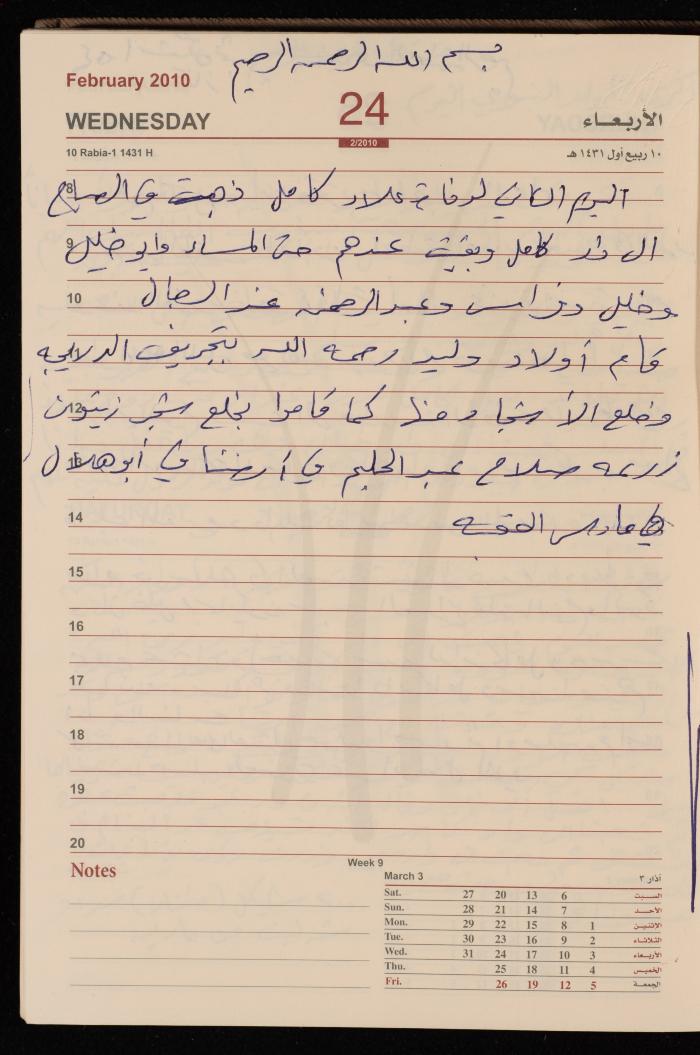 بسم الله الرحمن الرحيم
February 2010
24
WEDNESDAY
الأربعـاء
2/2010
10 Rabia-1 1431 H
١٠ ربيع أول ١٤٣١ هـ
8 اليوم الثاني لوفاة علاء كامل ذهبت في الصباح
9 الى دار كامل وبقيت عندهم حتى المساء وابو خليل
10 وخليل وفراس وعبدالرحمن عند
قام أولاد وليد رحمه الله بتجريف
12 وخلع الأشجار كما قاموا بخلع شجر زيتون
13 زرعه صلاح عبدالحليم في أرضنا في أبو هلال
14
15
16
17
18
19
20
Notes
Week 9
March 3
أذار ٣
Sat. 27 20 13 6 السـبت
Sun. 28 21 14 7 الأحـد
Mon. 29 22 15 8 1 الاثنـين
Tue. 30 23 16 9 2 الثلاثـاء
Wed. 31 24 17 10 3 الأربـعاء
Thu. 25 18 11 4 الخميس
Fri. 26 19 12 5 الجمعـة